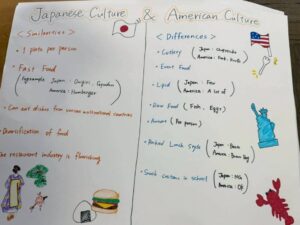 Japanese Culture & American Culture
<Similarities>
• 1 plate per person
• Fast Food
Japan : Onigiri, Gyudon
America : Hamburger
• Can eat dishes from various multinational countries
• Diversification of food
The restaurant industry is flourishing
<Differences>
• Cutlery
Japan : Chopsticks
America : Fork, Knife
• Event Food
• Lipid
Japan : Few
America : A lot of
• Raw Food (Fish, Egg)
• Amount (Per person)
• Packed Lunch Style
Japan : Bento
America : Brown Bag
• Snack Customs in school
Japan : NG
America : OK